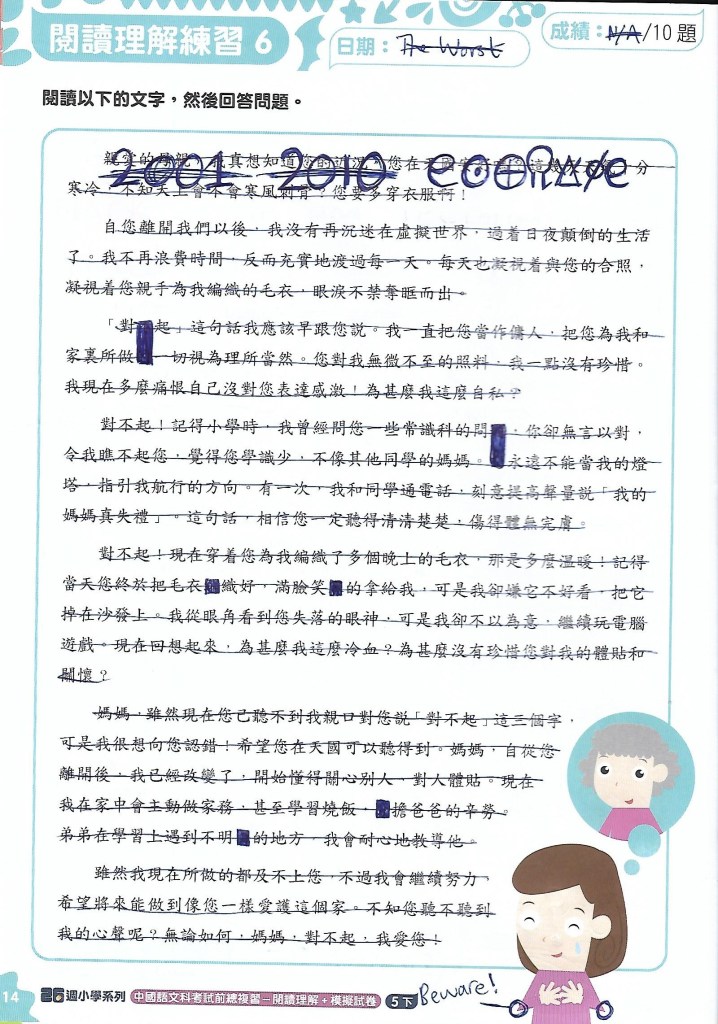 閱讀理解練習 6
日期：The Worst
成績：N/A/10 題
閱讀以下的文字，然後回答問題。
2001 2010
親 的母親，我真想知道您的近況，您在天 分
寒冷，不知天上會不會寒風刺骨？您要多穿衣服啊！
自您離開我們以後，我沒有再沉迷在虛擬世界，過着日夜顛倒的生活
了。我不再浪費時間，反而充實地渡過每一天。每天也凝視着與您的合照，
凝視着您親手為我編織的毛衣，眼淚不禁奪眶而出。
「對 起」這句話我應該早跟您說。我一直把您當作傭人，把您為我和
家裏所做 一切視為理所當然。您對我無微不至的照料，我一點沒有珍惜。
我現在多麼痛恨自己沒對您表達感激！為甚麼我這麼自私？
對不起！記得小學時，我曾經問您一些常識科的問 ，您卻無言以對，
令我瞧不起您，覺得您學識少，不像其他同學的媽媽。 永遠不能當我的燈
塔，指引我航行的方向。有一次，我和同學通電話，刻意提高聲量說「我的
媽媽真失禮」。這句話，相信您一定聽得清清楚楚，傷得體無完膚。
對不起！現在穿着您為我編織了多個晚上的毛衣，那是多麼溫暖！記得
當天您終於把毛衣 織好，滿臉笑 的拿給我，可是我卻嫌它不好看，把它
掉在沙發上。我從眼角看到您失落的眼神，可是我卻不以為意，繼續玩電腦
遊戲。現在回想起來，為甚麼我這麼冷血？為甚麼沒有珍惜您對我的體貼和
關懷？
媽媽，雖然現在您已聽不到我親口對您說「對不起」這三個字，
可是我很想向您認錯！希望您在天國可以聽得到。媽媽，自從您
離開後，我已經改變了，開始懂得關心別人，對人體貼。現在
我在家中會主動做家務，甚至學習燒飯， 擔爸爸的辛勞。
弟弟在學習上遇到不明 的地方，我會耐心地教導他。
雖然我現在所做的都及不上您，不過我會繼續努力，
希望將來能做到像您一樣愛護這個家。不知您聽不聽到
我的心聲呢？無論如何，媽媽，對不起，我愛您！
14
26週小學系列 中國語文科考試前總複習—閱讀理解＋模擬試卷 5下
Beware!